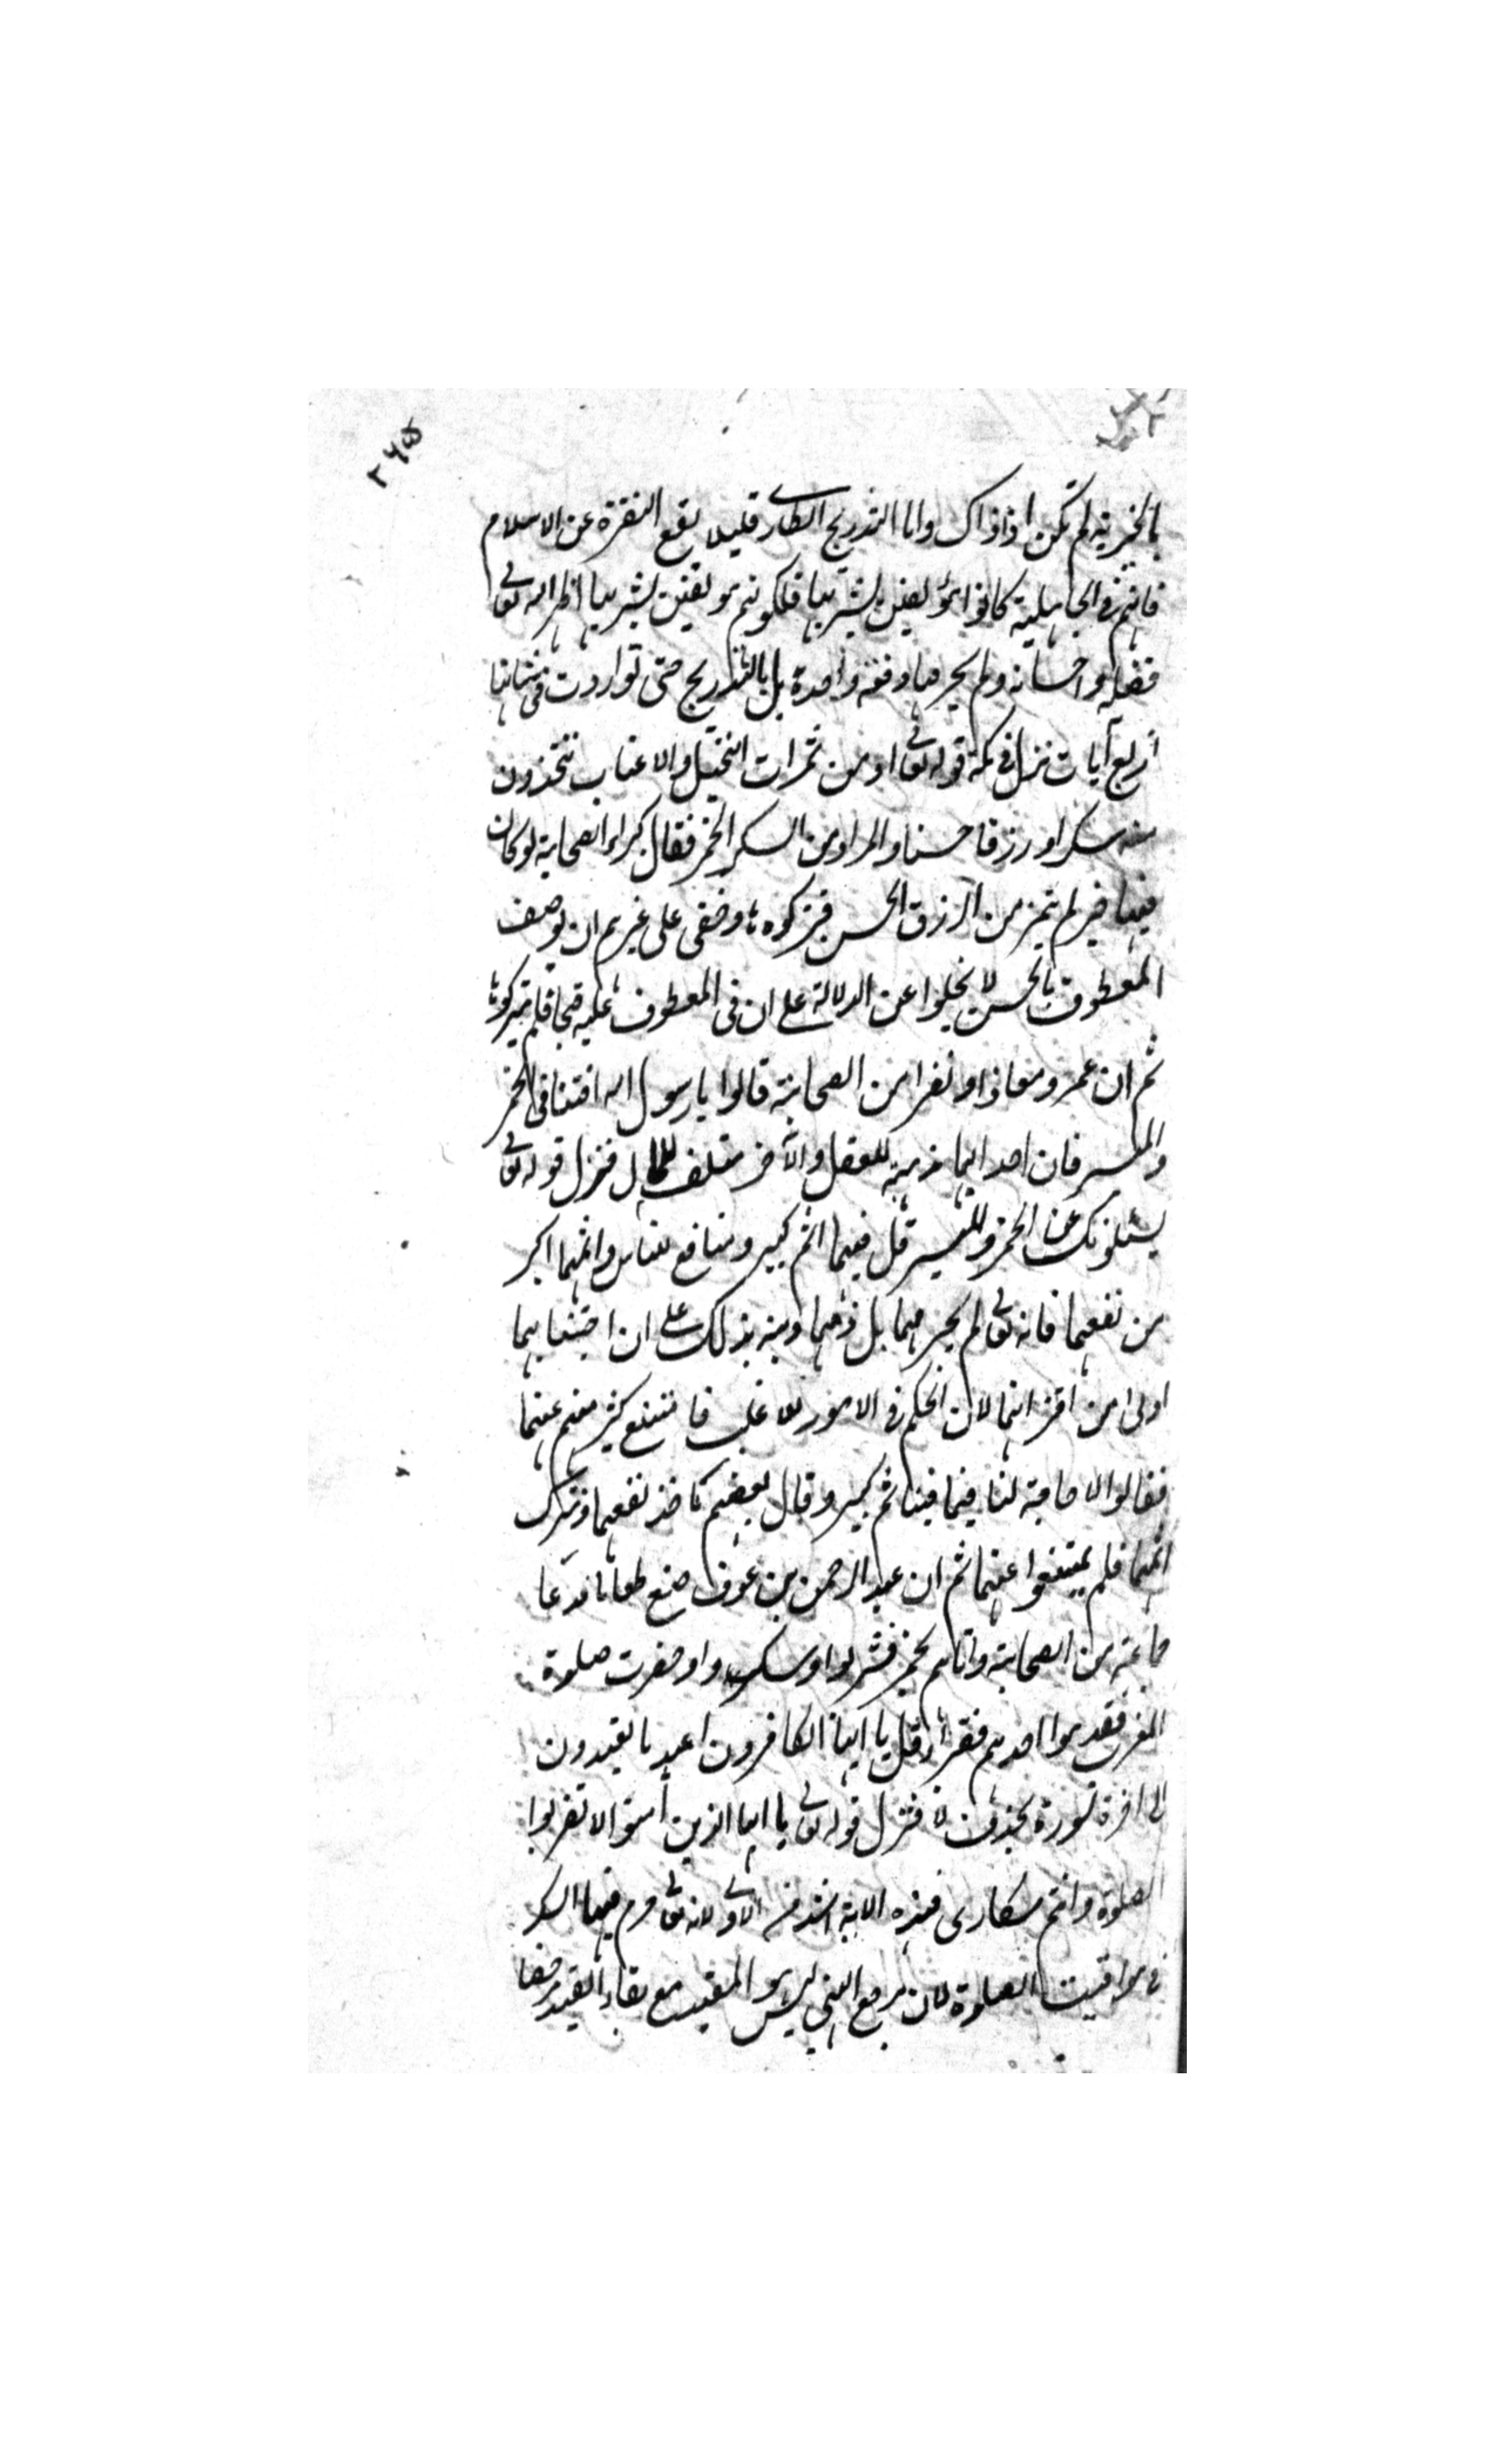 ٢٦٥
بالخيرية لم تكن اذ ذاك واما التدريج لئلا يقع النفرة عن الاسلام
فانهم فى الجاهلية كانوا مؤلفين بشربها فلكونهم مولفين بشربها اظهر الله تعالى
فضله واحسانه ولم يحرمها دفعة واحدة بل بالتدريج حتى تواردت فى شانها
اربع آيات نزل فى مكة قوله تعالى ومن ثمرات النخيل والاعناب تتخذون
منه سكرا ورزقا حسنا والمراد من السكر الخمر فقال كبراء الصحابة لو كان
فيها خير لم يتميز من الرزق الحسن فتركوها وخفى على غيرهم ان توصيف
المعطوف بالحسن لا يخلوا عن الدلالة على ان فى المعطوف عليه قبحا فلم يتركوها
ثم ان عمر ومعاذا ونفرا من الصحابة قالوا يا رسول الله افتنا فى الخمر
والميسر فان احداهما مذهبة للعقل والآخر متلف للمال فنزل قوله تعالى
يسئلونك عن الخمر والميسر قل فيهما اثم كبير ومنافع للناس واثمهما اكبر
من نفعهما فانه تعالى لم يحرمهما بل ذمهما ونبه بذلك على ان اجتنابهما
اولى من اقترانهما لان الحكم فى الامور للاغلب فامتنع كثير منهم عنهما
فقالوا لا حاجة لنا فيما فيه اثم كبير وقال بعضهم ناخذ نفعهما ونترك
اثمهما فلم يمتنعوا عنهما ثم ان عبد الرحمن بن عوف صنع طعاما فدعا
جماعة من الصحابة واتاهم بخمر فشربوا وسكروا وحضرت صلوة
المغرب فقدموا احدهم فقرأ قل يا ايها الكافرون اعبد ما تعبدون
الى اخرة السورة بحذف لا فنزل قوله تعالى يا ايها الذين آمنوا لا تقربوا
الصلوة وانتم سكارى فهذه الاية اشد من الاولى لانه تعالى حرم فيها السكر
فى مواقيت الصلوة لان مرجع النهى ليس هو المقيد مع بقاء القيد مرخصا